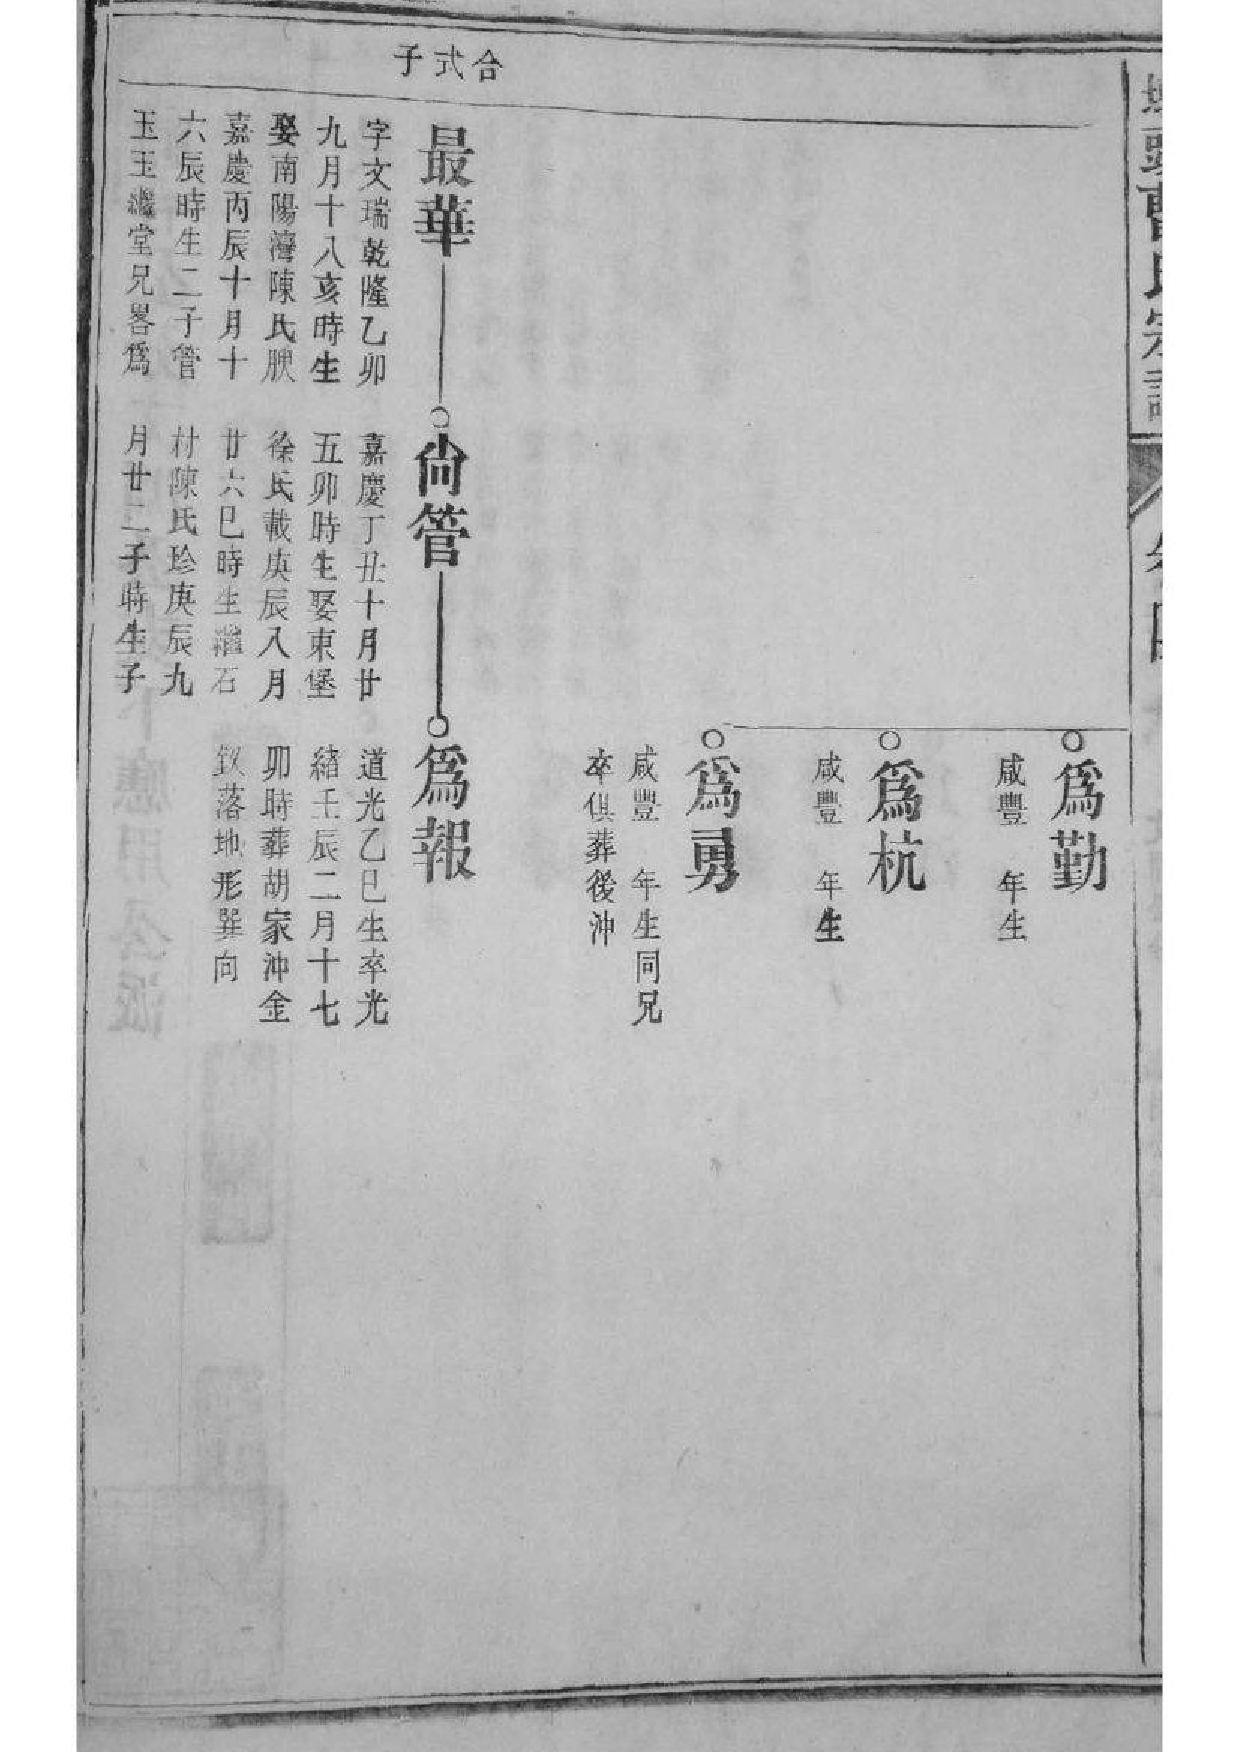 曹氏宗譜
為勤
咸豐 年生
為杭
咸豐 年生
為勇
咸豐 年生同兄
卒俱葬後沖
合式子
最華
字文瑞乾隆乙卯
九月十八亥時生
娶南陽灣陳氏腴
嘉慶丙辰十月十
六辰時生二子管
玉玉繼堂兄畧為
尙管
嘉慶丁丑十月廿
五卯時生娶東堡
徐氏載庚辰八月
廿六巳時生繼石
村陳氏珍庚辰九
月廿二子時生子
為報
道光乙巳生卒光
緒壬辰二月十七
卯時葬胡家沖金
釵落地形巽向